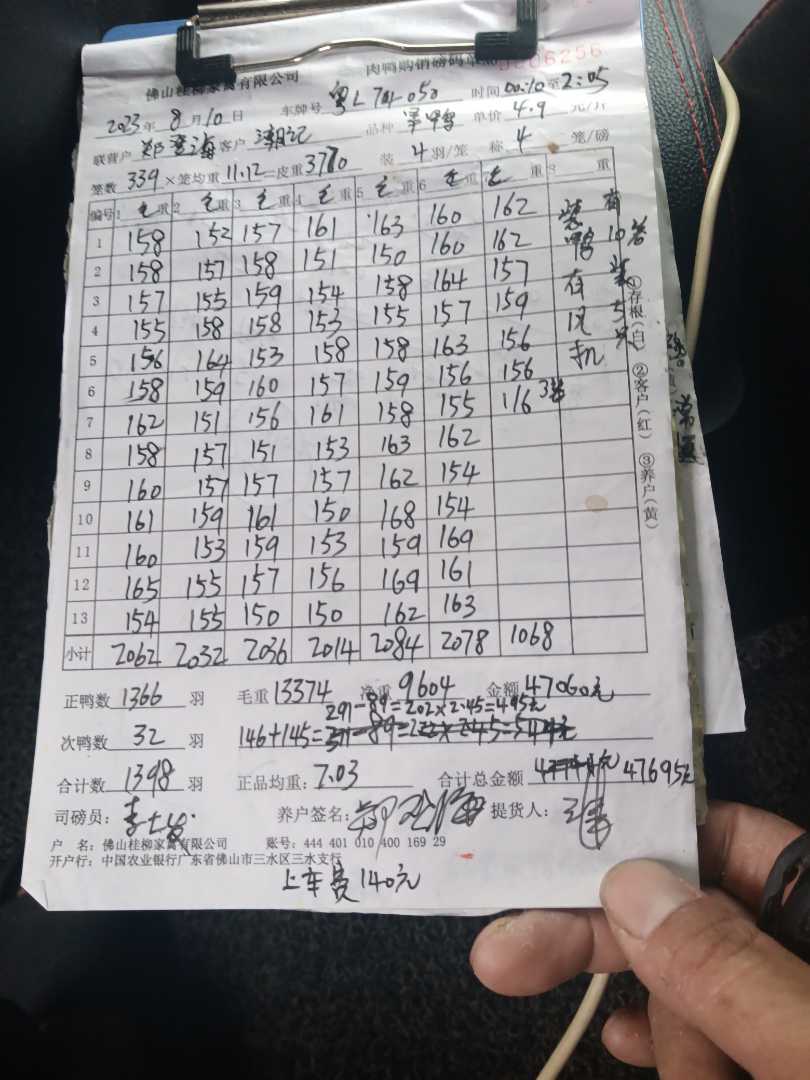 佛山桂柳家禽有限公司 肉鸭购销磅码单 0006256
2023年8月10日 车牌号 粤L 74-050 时间 00:10至2:05
联营户 郑澄海 客户 潮记 品种 单价 4.9 元/斤
笼数 339 × 笼均重 11.12 = 皮重 3770 装 4 羽/笼 称 4 笼/磅
编号 1 毛重 2 毛重 3 毛重 4 毛重 5 毛重 6 毛重 毛重 8 重
1 158 152 157 161 163 160 162
2 158 157 158 151 150 160 162
3 157 155 159 154 158 164 157
4 155 158 158 153 155 157 159
5 156 164 153 158 158 163 156
6 158 159 160 157 159 156 156
7 162 151 156 161 158 155 116 3笼
8 158 157 151 153 163 162
9 160 157 157 157 162 154
10 161 159 161 150 168 154
11 160 153 159 153 159 169
12 165 155 157 156 169 161
13 154 155 150 150 162 163
小计 2062 2032 2036 2014 2084 2078 1068
装鸭有风机
有10笼装5只
①存根(白) ②客户(红) ③养户(黄)
正鸭数 1366 羽 毛重 13374 净重 9604 金额 47060元
291-89=202×2.45=495元
次鸭数 32 羽 146+145=
合计数 1398 羽 正品均重: 7.03 合计总金额 47695元
司磅员: 养户签名: 郑澄海 提货人:
户 名: 佛山桂柳家禽有限公司 账号: 444 401 010 400 169 29
开户行: 中国农业银行广东省佛山市三水区三水支行
上车费 140元